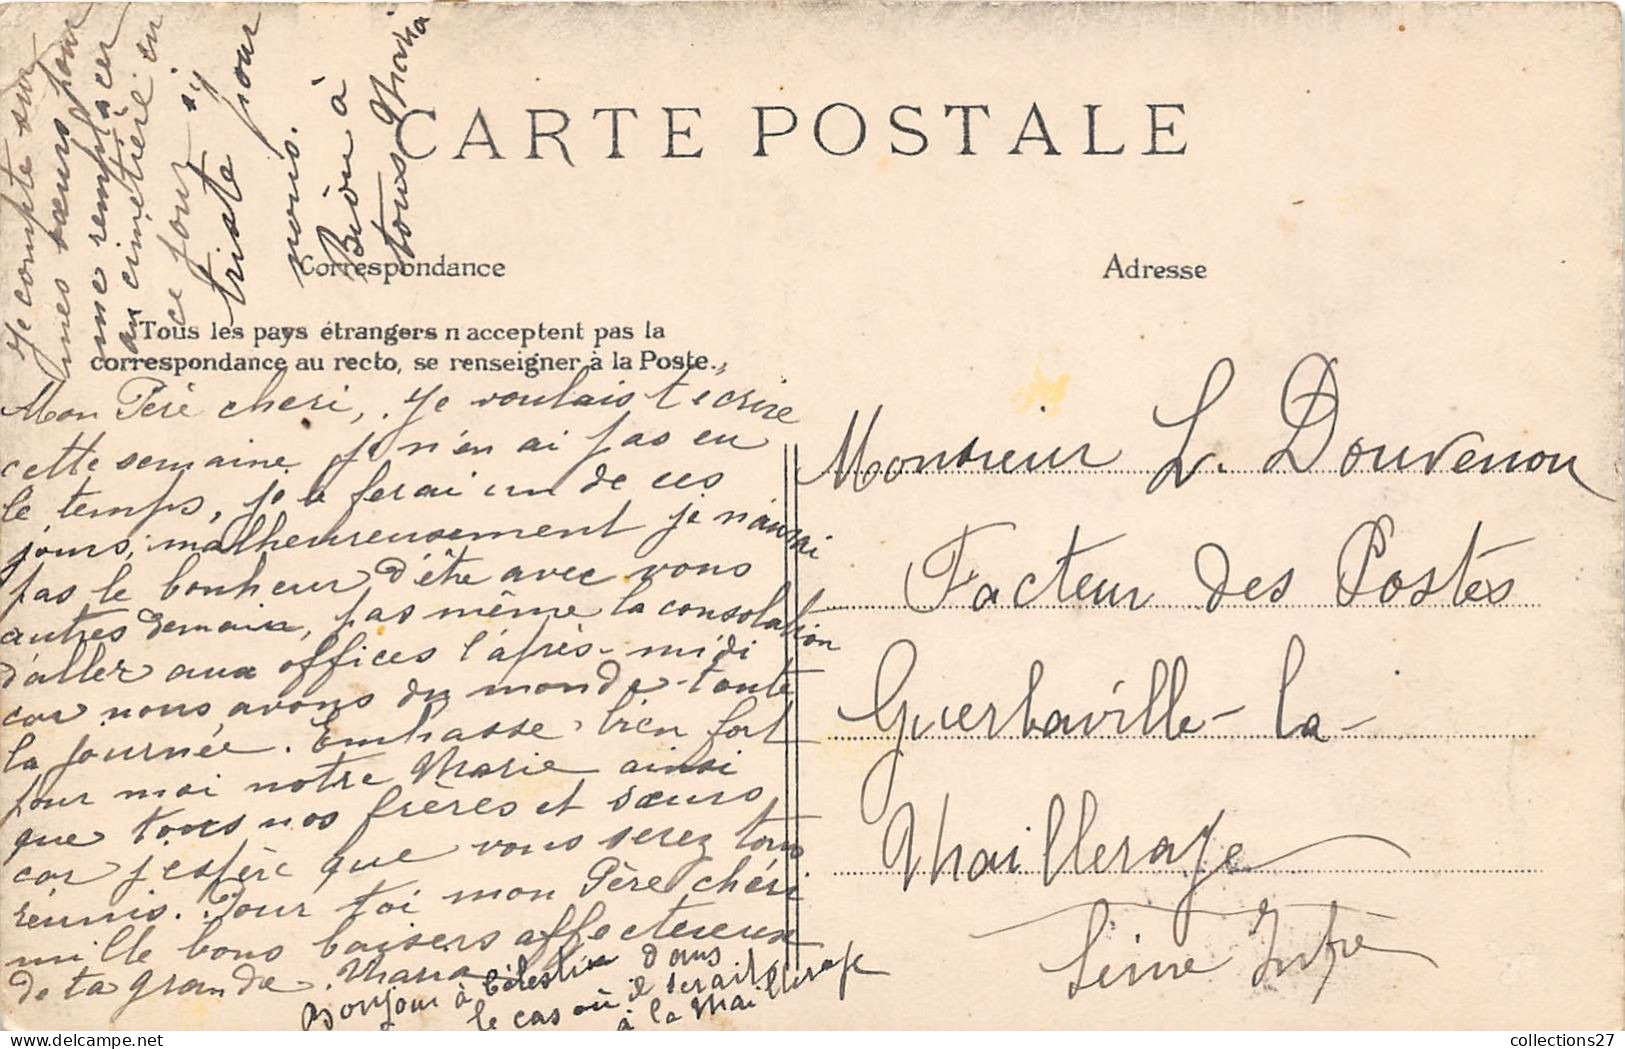 CARTE POSTALE
Correspondance
Adresse
Tous les pays étrangers n'acceptent pas la
correspondance au recto, se renseigner à la Poste.
Mon Père cheri, Je voulais t'ecrire
cette semaine je n'en ai pas eu
le temps, je le ferai un de ces
jours; malheureusement je n'aurai
pas le bonheur d'être avec vous
autres demain, pas même la consolation
d'aller aux offices l'après-midi
car nous avons du monde toute
la journée. Embrasse bien fort
pour moi notre Marie ainsi
que tous nos frères et sœurs
car j'espère que vous serez tous
réunis. Pour toi mon Père chéri
mille bons baisers affectueux
de ta grande. Maria
Bonjour à Célestin dans
le cas où il serait
à la Mailleraye
Je compte sur
mes sœurs pour
me remplacer
au cimetière en
ce jour si
triste pour
nous.
Bien à
tous Maria
Monsieur L. Douvenou
Facteur des Postes
Guerbaville-la-
Mailleraye
Seine Infre
collections27